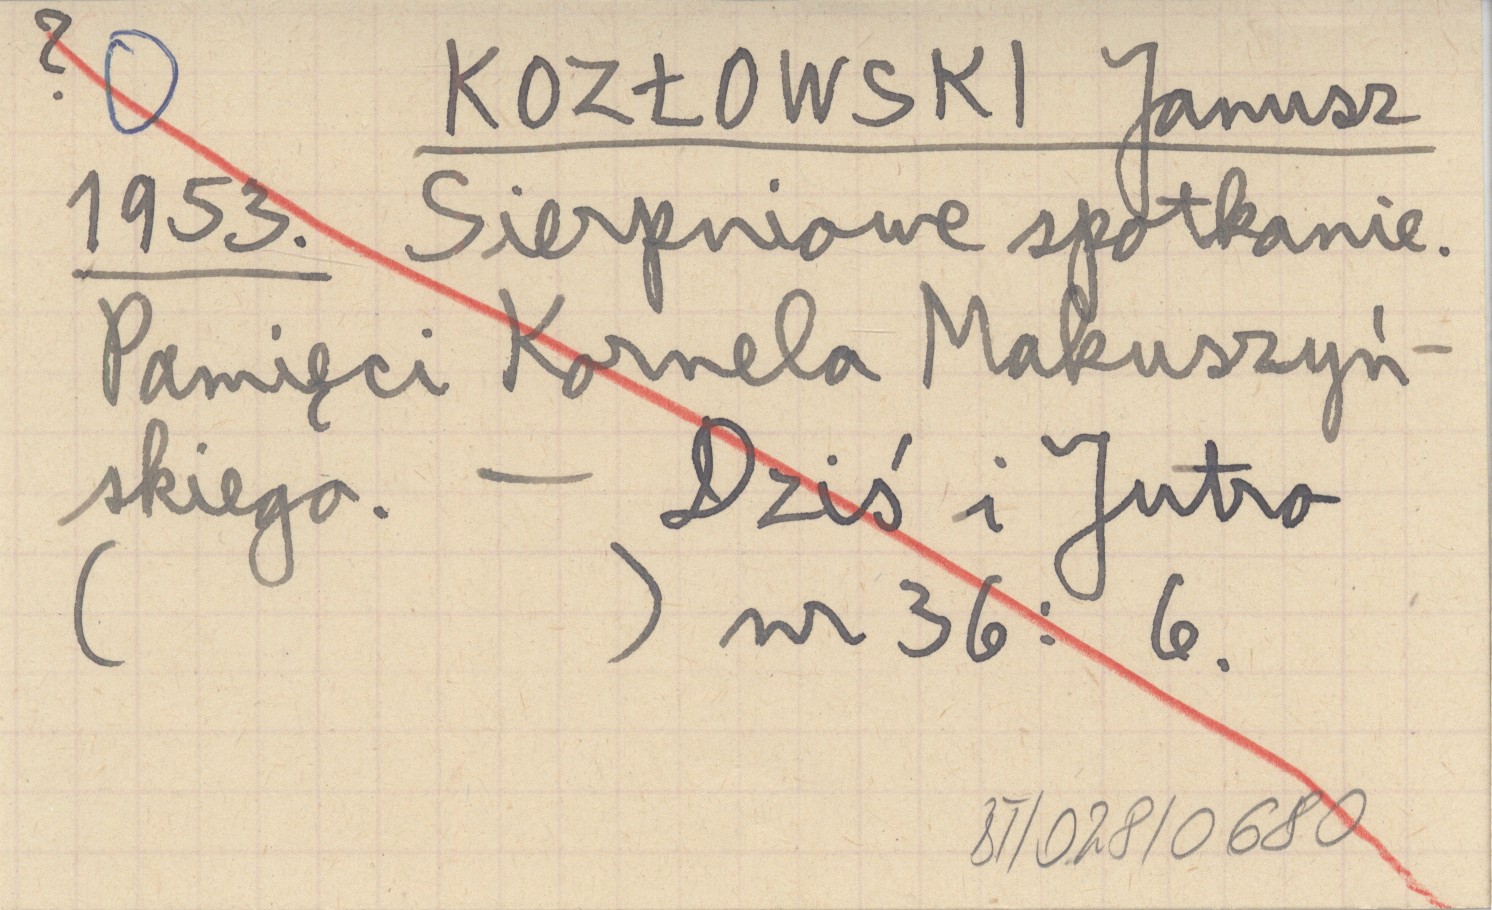 ? O KOZŁOWSKI Janusz
1953. Sierpniowe spotkanie.
Pamięci Kornela Makuszyń-
skiego. — Dziś i Jutro
( ) nr 36: 6.
BT/028/0680